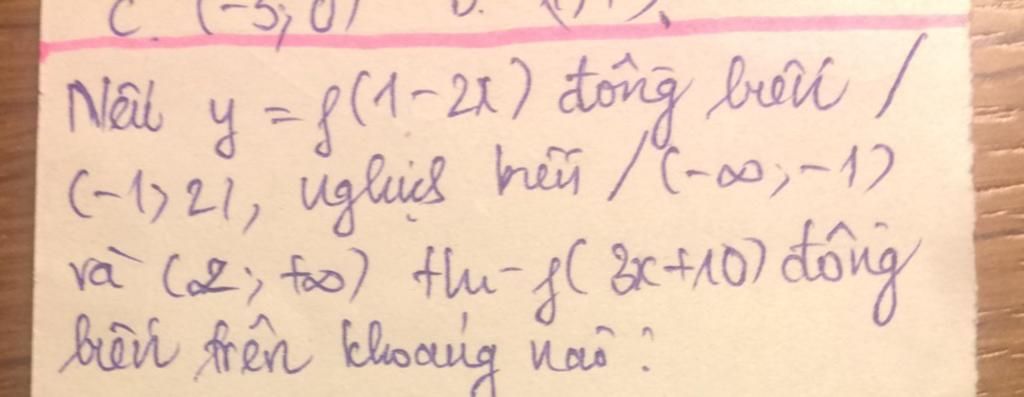 C. (-5; 0) D.
Nếu y = f(1-2x) đồng biến /
(-1; 2), nghịch biến / (-∞; -1)
và (2; +∞) thì f(3x+10) đồng
biến trên khoảng nào?